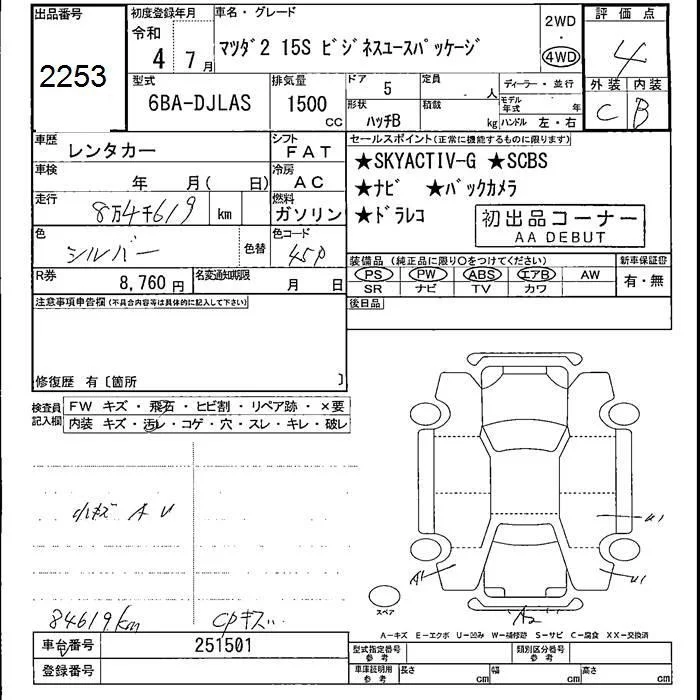 出品番号
2253
初度登録年月
令和
4 7月
車名・グレード
マツダ2 15S ビジネスユースパッケージ
2WD
・
4WD
評価点
4
外装 内装
C B
型式
6BA-DJLAS
排気量
1500
CC
ドア
5
定員
人
形状
ハッチB
積載
kg
ディーラー・並行
モデル年式
年
ハンドル 左・右
車歴
レンタカー
シフト
FAT
車検
年 月( 日)
冷房
AC
走行
8万4千619 km
燃料
ガソリン
色
シルバー
色替
色コード
45P
R券
8,760円
名変通知期限
月 日
セールスポイント(正常に機能するものに限ります)
★SKYACTIV-G ★SCBS
★ナビ ★バックカメラ
★ドラレコ
初出品コーナー
AA DEBUT
装備品(純正品に限り○をつけてください)
PS PW ABS エアB AW
SR ナビ TV カワ
新車保証書
有・無
後日品
注意事項申告欄(不具合内容等は具体的に記入して下さい)
修復歴 有〔箇所 〕
検査員記入欄
FW キズ・飛石・ヒビ割・リペア跡・×要
内装 キズ・汚レ・コゲ・穴・スレ・キレ・破レ
小キズ A U
84619km
CPキズ…
U1
A1
U1
A2
スペア
A-キズ E-エクボ U-凹み W-補修跡 S-サビ C-腐食 XX-交換済
車台番号
251501
登録番号
型式指定番号
参考
類別区分番号
参考
車庫証明用
参考
長さ cm
幅 cm
高さ cm